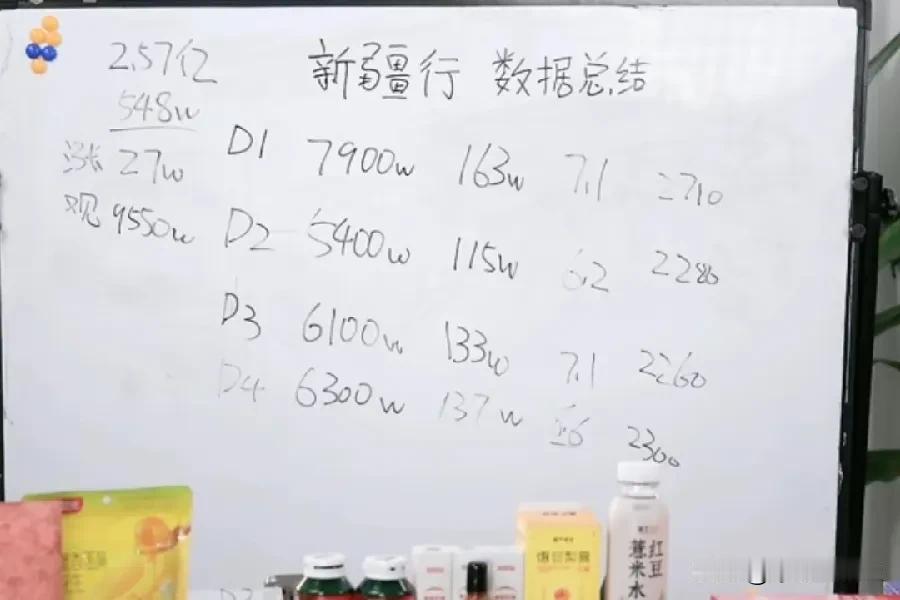 新疆行 数据总结
2.57亿
548w
涨 27w
观 9550w
D1 7900w 163w 7.1 2710
D2 5400w 115w 6.2 2280
D3 6100w 133w 7.1 2260
D4 6300w 137w 6 2300
红豆
薏米水